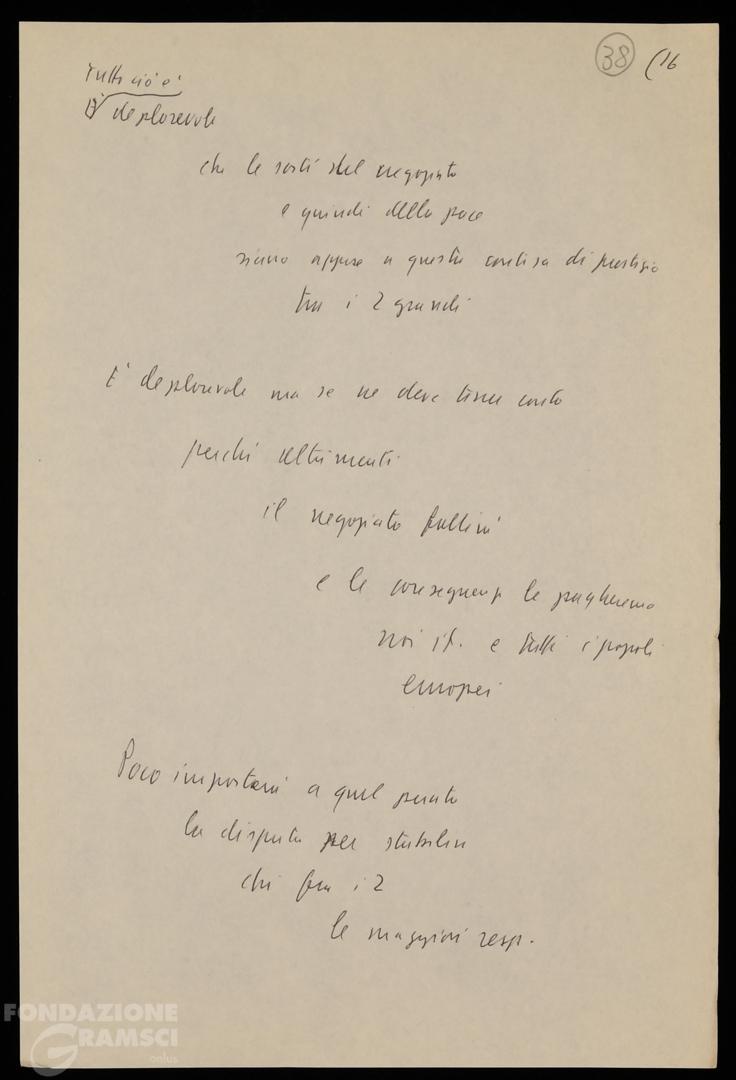 38 (16
Tutto ciò è
E' deplorevole
che le sorti del negoziato
e quindi della pace
siano appese a questa contesa di prestigio
tra i 2 grandi
E' deplorevole ma se ne deve tener conto
perché altrimenti
il negoziato fallirà
e le conseguenze le pagheremo
noi it. e tutti i popoli
europei
Poco importerà a quel punto
la disputa per stabilire
chi fra i 2
le maggiori resp.
FONDAZIONE
GRAMSCI
onlus